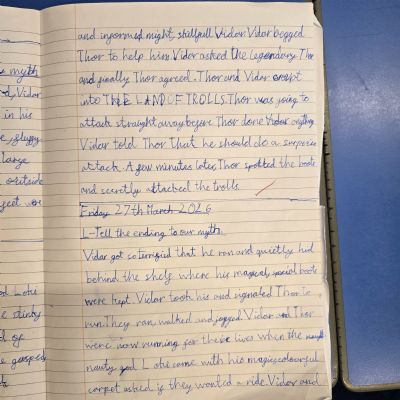 myth
d, Vidar
in his
e, sluppy
large
outside
ject wor
od Loki
e stinky
d of
e gasped
and informed might, skillfull Vidar. Vidar begged
Thor to help him. Vidar asked the legendary Thor
and finally Thor agreed. Thor and Vidar crept
into THE LAND OF TROLLS. Thor was going to
attack straight away before Thor done Vidar
Vidar told Thor that he should do a surprise
attack. A few minutes later, Thor spotted the boots
and secretly attacked the trolls.
Friday 27th March 2026
L-Tell the ending to our myth.
Vidar got so terrified that he ran and quietly hid
behind the shelf where his magical, special boots
were kept. Vidar took his and signaled Thor to
run. They ran, walked and jogged. Vidar and Thor
were now running for there lives when the
nauty god Loki came with his magic, colourful
carpet asked if they wanted a ride. Vidar and